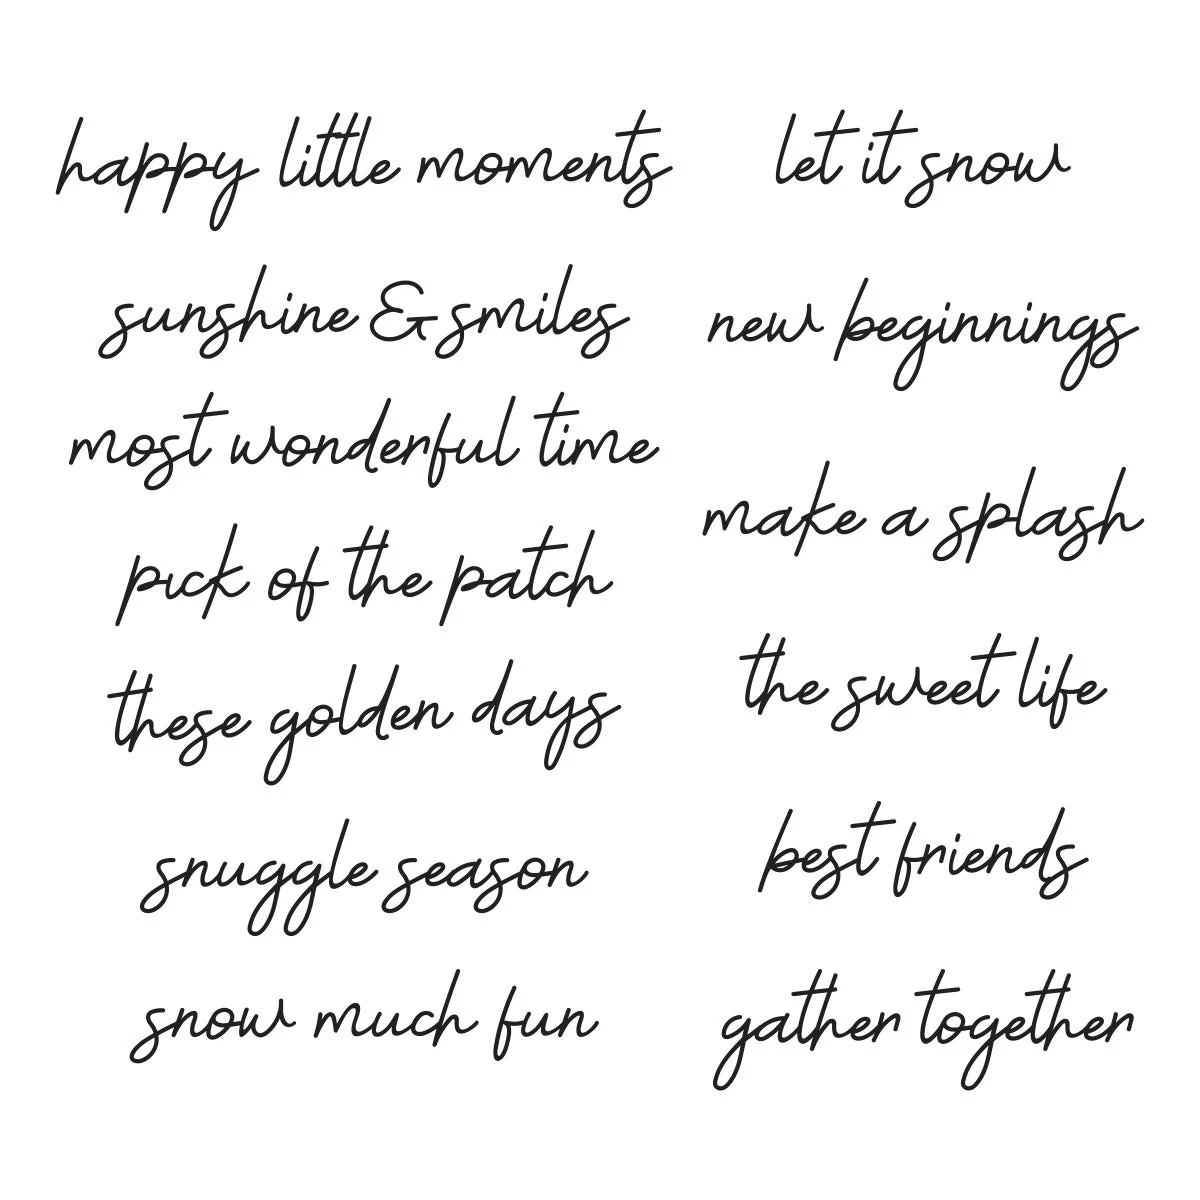 happy little moments
sunshine & smiles
most wonderful time
pick of the patch
these golden days
snuggle season
snow much fun
let it snow
new beginnings
make a splash
the sweet life
best friends
gather together